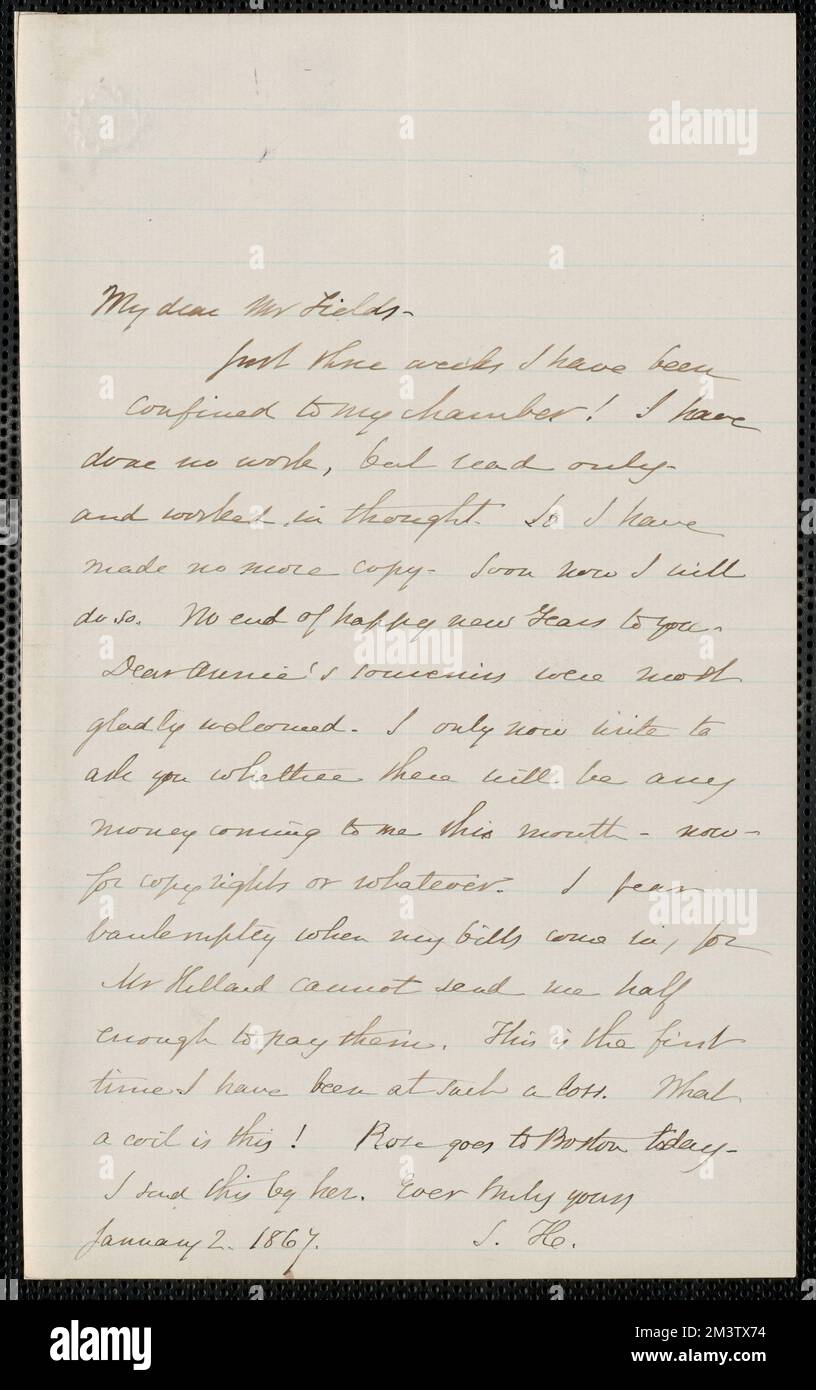 My dear Mr Fields -
Just three weeks I have been
confined to my chamber! I have
done no work, but read only -
and worked in thought. So I have
made no more copy - Soon now I will
do so. No end of happy new Years to you -
Dear Annie's souvenirs were most
gladly welcomed - I only now write to
ask you whether there will be any
money coming to me this month - now -
for copyrights or whatever. I fear
bankruptcy when my bills come in, for
Mr Hillard cannot send me half
enough to pay them. This is the first
time I have been at such a loss. What
a coil is this! Rose goes to Boston today -
I send this by her. Ever truly yours
January 2. 1867. S. H.
alamy
a
Image ID: 2M3TX74
www.alamy.com